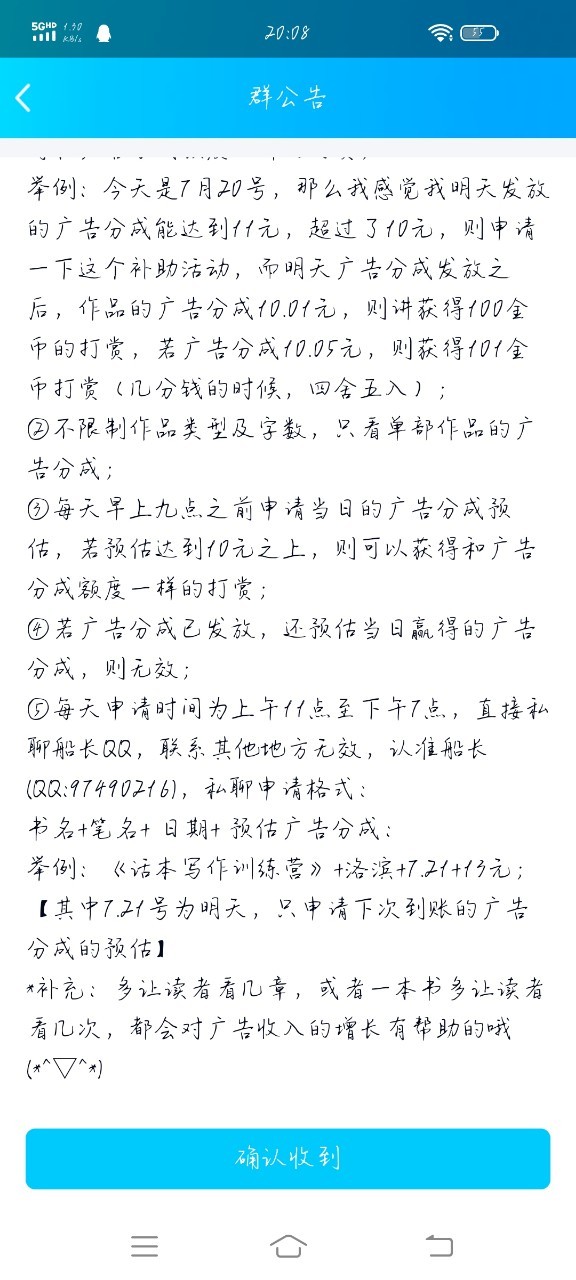 5GHD
1.90
KB/s
20:08
55
群公告
举例：今天是7月20号，那么我感觉我明天发放
的广告分成能达到11元，超过了10元，则申请
一下这个补助活动，而明天广告分成发放之
后，作品的广告分成10.01元，则讲获得100金
币的打赏，若广告分成10.05元，则获得101金
币打赏（几分钱的时候，四舍五入）；
②不限制作品类型及字数，只看单部作品的广
告分成；
③每天早上九点之前申请当日的广告分成预
估，若预估达到10元之上，则可以获得和广告
分成额度一样的打赏；
④若广告分成已发放，还预估当日赢得的广告
分成，则无效；
⑤每天申请时间为上午11点至下午7点，直接私
聊船长QQ，联系其他地方无效，认准船长
(QQ:97490216)，私聊申请格式：
书名+笔名+ 日期+ 预估广告分成：
举例：《话本写作训练营》+洛滨+7.21+13元；
【其中7.21号为明天，只申请下次到账的广告
分成的预估】
*补充：多让读者看几章，或者一本书多让读者
看几次，都会对广告收入的增长有帮助的哦
(*^▽^*)
确认收到